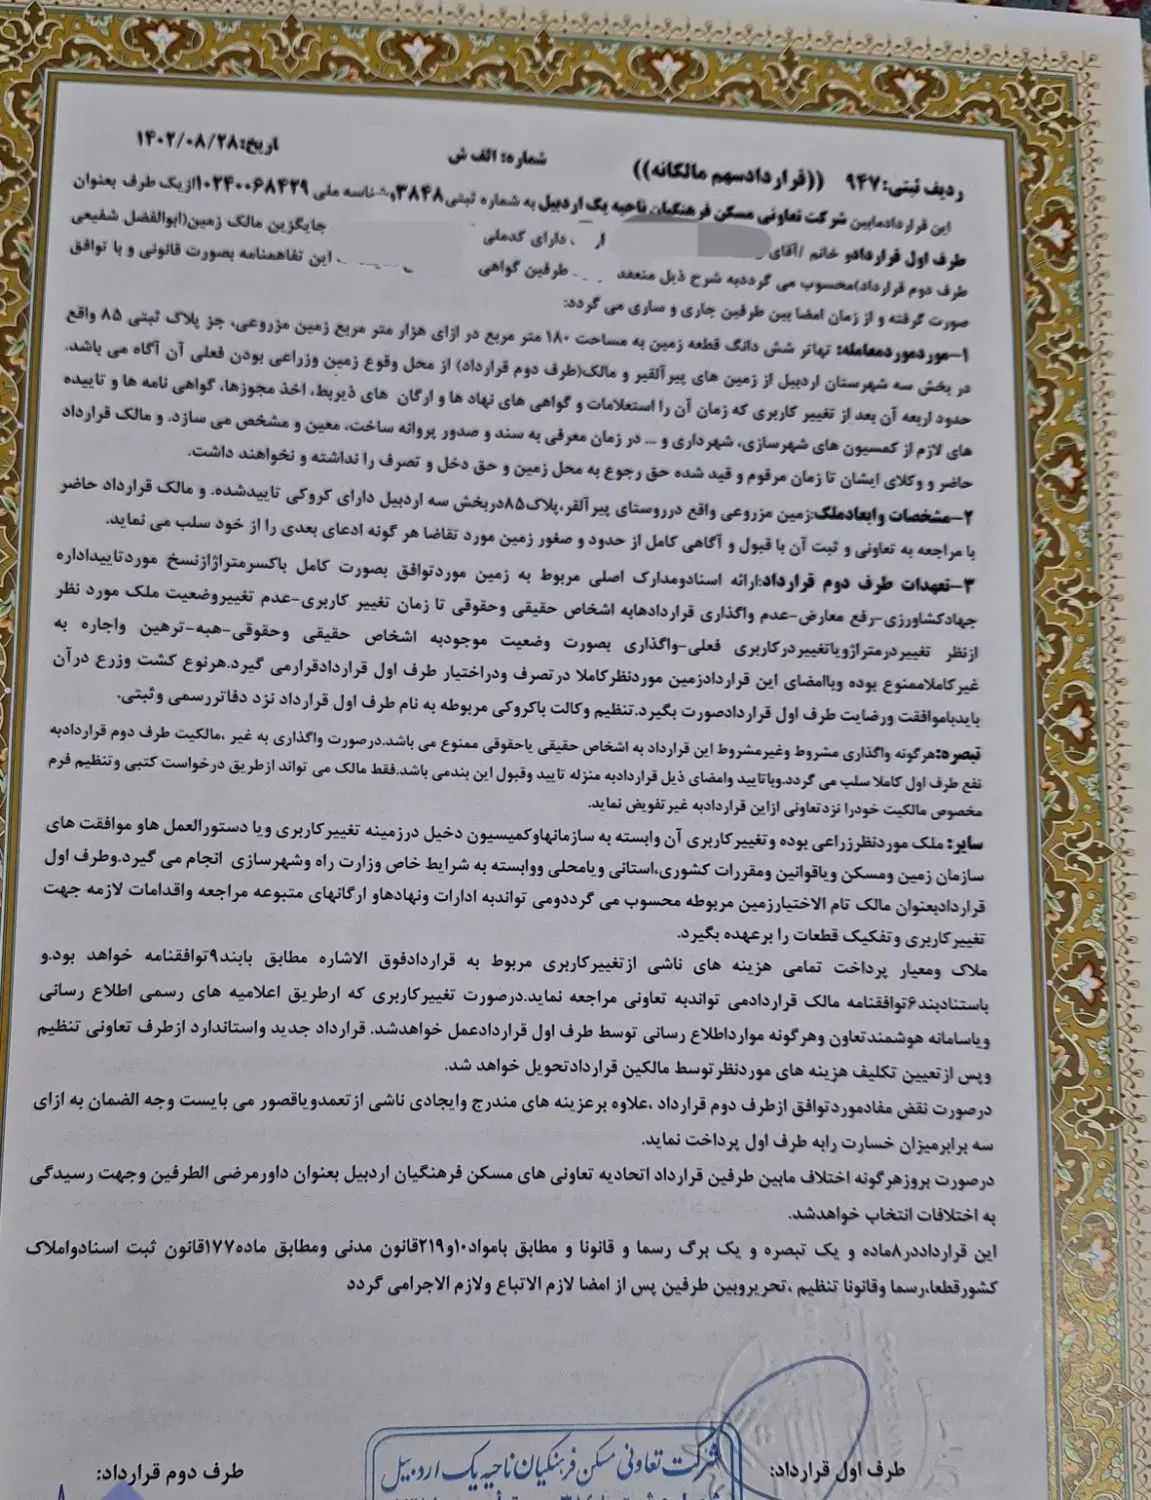 ردیف ثبتی: ۹۴۷ ((قرارداد سهم مالکانه)) شماره: الف ش تاریخ: ۱۴۰۲/۰۸/۲۸
این قرارداد مابین شرکت تعاونی مسکن فرهنگیان ناحیه یک اردبیل به شماره ثبتی ۳۸۴۸ و شناسه ملی ۱۰۲۴۰۰۶۸۴۲۹ ازیک طرف بعنوان
طرف اول قراردادو خانم /آقای دارای کدملی جایگزین مالک زمین(ابوالفضل شفیعی
طرف دوم قرارداد)محسوب می گرددبه شرح ذیل منعقد طرفین گواهی این تفاهمنامه بصورت قانونی و با توافق
صورت گرفته و از زمان امضا بین طرفین جاری و ساری می گردد:
۱-موردمعامله: تهاتر شش دانگ قطعه زمین به مساحت ۱۸۰ متر مربع در ازای هزار متر مربع زمین مزروعی، جز پلاک ثبتی ۸۵ واقع
در بخش سه شهرستان اردبیل از زمین های پیرآلقیر و مالک(طرف دوم قرارداد) از محل وقوع زمین وزراعی بودن فعلی آن آگاه می باشد.
حدود اربعه آن بعد از تغییر کاربری که زمان آن را استعلامات و گواهی های نهاد ها و ارگان های ذیربط، اخذ مجوزها، گواهی نامه ها و تاییده
های لازم از کمسیون های شهرسازی، شهرداری و ... در زمان معرفی به سند و صدور پروانه ساخت، معین و مشخص می سازد. و مالک قرارداد
حاضر و وکلای ایشان تا زمان مرقوم و قید شده حق رجوع به محل زمین و حق دخل و تصرف را نداشته و نخواهند داشت.
۲-مشخصات وابعادملک:زمین مزروعی واقع درروستای پیرآلقر،پلاک۸۵دربخش سه اردبیل دارای کروکی تاییدشده. و مالک قرارداد حاضر
با مراجعه به تعاونی و ثبت آن با قبول و آگاهی کامل از حدود و صغور زمین مورد تقاضا هر گونه ادعای بعدی را از خود سلب می نماید.
۳-تعهدات طرف دوم قرارداد:ارائه اسنادومدارک اصلی مربوط به زمین موردتوافق بصورت کامل باکسرمتراژازنسخ موردتاییداداره
جهادکشاورزی-رفع معارض-عدم واگذاری قراردادهابه اشخاص حقیقی وحقوقی تا زمان تغییر کاربری-عدم تغییروضعیت ملک مورد نظر
ازنظر تغییردرمتراژویاتغییردرکاربری فعلی-واگذاری بصورت وضعیت موجودبه اشخاص حقیقی وحقوقی-هبه-ترهین واجاره به
غیرکاملاممنوع بوده وباامضای این قراردادزمین موردنظرکاملا درتصرف ودراختیار طرف اول قراردادقرارمی گیرد.هرنوع کشت وزرع درآن
بایدباموافقت ورضایت طرف اول قراردادصورت بگیرد.تنظیم وکالت باکروکی مربوطه به نام طرف اول قرارداد نزد دفاتررسمی وثبتی.
تبصره:هرگونه واگذاری مشروط وغیرمشروط این قرارداد به اشخاص حقیقی یاحقوقی ممنوع می باشد.درصورت واگذاری به غیر ،مالکیت طرف دوم قراردادبه
نفع طرف اول کاملا سلب می گردد.وباتایید وامضای ذیل قراردادبه منزله تایید وقبول این بندمی باشد.فقط مالک می تواند ازطریق درخواست کتبی وتنظیم فرم
مخصوص مالکیت خودرا نزدتعاونی ازاین قراردادبه غیرتفویض نماید.
سایر: ملک موردنظرزراعی بوده وتغییرکاربری آن وابسته به سازمانهاوکمیسیون دخیل درزمینه تغییرکاربری ویا دستورالعمل هاو موافقت های
سازمان زمین ومسکن ویاقوانین ومقررات کشوری،استانی ویامحلی ووابسته به شرایط خاص وزارت راه وشهرسازی انجام می گیرد.وطرف اول
قراردادبعنوان مالک تام الاختیارزمین مربوطه محسوب می گرددومی تواندبه ادارات ونهادهاو ارگانهای متبوعه مراجعه واقدامات لازمه جهت
تغییرکاربری وتفکیک قطعات را برعهده بگیرد.
ملاک ومعیار پرداخت تمامی هزینه های ناشی ازتغییرکاربری مربوط به قراردادفوق الاشاره مطابق بابند۹توافقنامه خواهد بود.و
باستنادبند۶توافقنامه مالک قراردادمی تواندبه تعاونی مراجعه نماید.درصورت تغییرکاربری که ازطریق اعلامیه های رسمی اطلاع رسانی
ویاسامانه هوشمندتعاون وهرگونه موارداطلاع رسانی توسط طرف اول قراردادعمل خواهدشد. قرارداد جدید واستاندارد ازطرف تعاونی تنظیم
وپس ازتعیین تکلیف هزینه های موردنظرتوسط مالکین قراردادتحویل خواهد شد.
درصورت نقض مفادموردتوافق ازطرف دوم قرارداد ،علاوه برعزینه های مندرج وایجادی ناشی ازتعمدویاقصور می بایست وجه الضمان به ازای
سه برابرمیزان خسارت رابه طرف اول پرداخت نماید.
درصورت بروزهرگونه اختلاف مابین طرفین قرارداد اتحادیه تعاونی های مسکن فرهنگیان اردبیل بعنوان داورمرضی الطرفین وجهت رسیدگی
به اختلافات انتخاب خواهدشد.
این قرارداددر۸ماده و یک تبصره و یک برگ رسما و قانونا و مطابق بامواد۱۰و۲۱۹قانون مدنی ومطابق ماده۱۷۷قانون ثبت اسنادواملاک
کشورقطعا،رسما وقانونا تنظیم ،تحریروبین طرفین پس از امضا لازم الاتباع ولازم الاجرامی گردد
طرف اول قرارداد: طرف دوم قرارداد:
شرکت تعاونی مسکن فرهنگیان ناحیه یک اردبیل